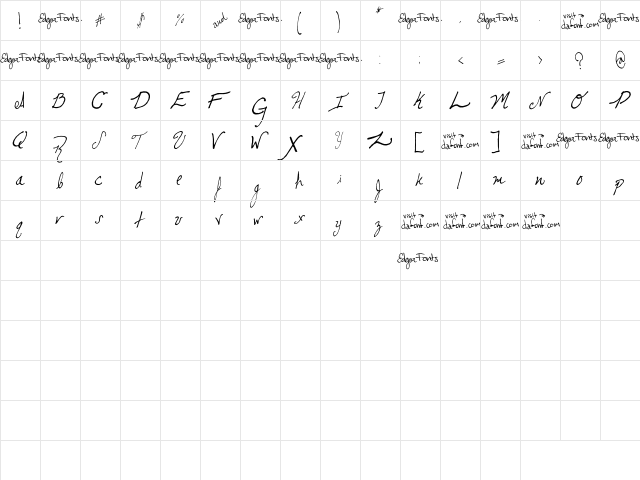 ! EdgarFonts. # $ % and EdgarFonts. ( ) * EdgarFonts. , EdgarFonts. . visit dafont.com EdgarFonts.
EdgarFonts. EdgarFonts. EdgarFonts. EdgarFonts. EdgarFonts. EdgarFonts. EdgarFonts. EdgarFonts. EdgarFonts. : ; < = > ? @
A B C D E F G H I J K L M N O P
Q R S T U V W X Y Z [ visit dafont.com ] visit dafont.com EdgarFonts. EdgarFonts.
a b c d e f g h i j k l m n o p
q r s t u v w x y z visit dafont.com visit dafont.com visit dafont.com visit dafont.com
EdgarFonts.